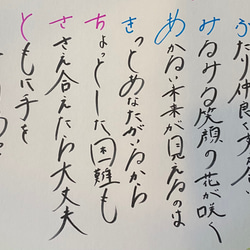 ふたり仲良く
みるみる笑顔の花が咲く
あかるい未来が見えるのは
きっとあなたがいるから
ちょっとした困難も
ささえ合えたら大丈夫
ともに手を